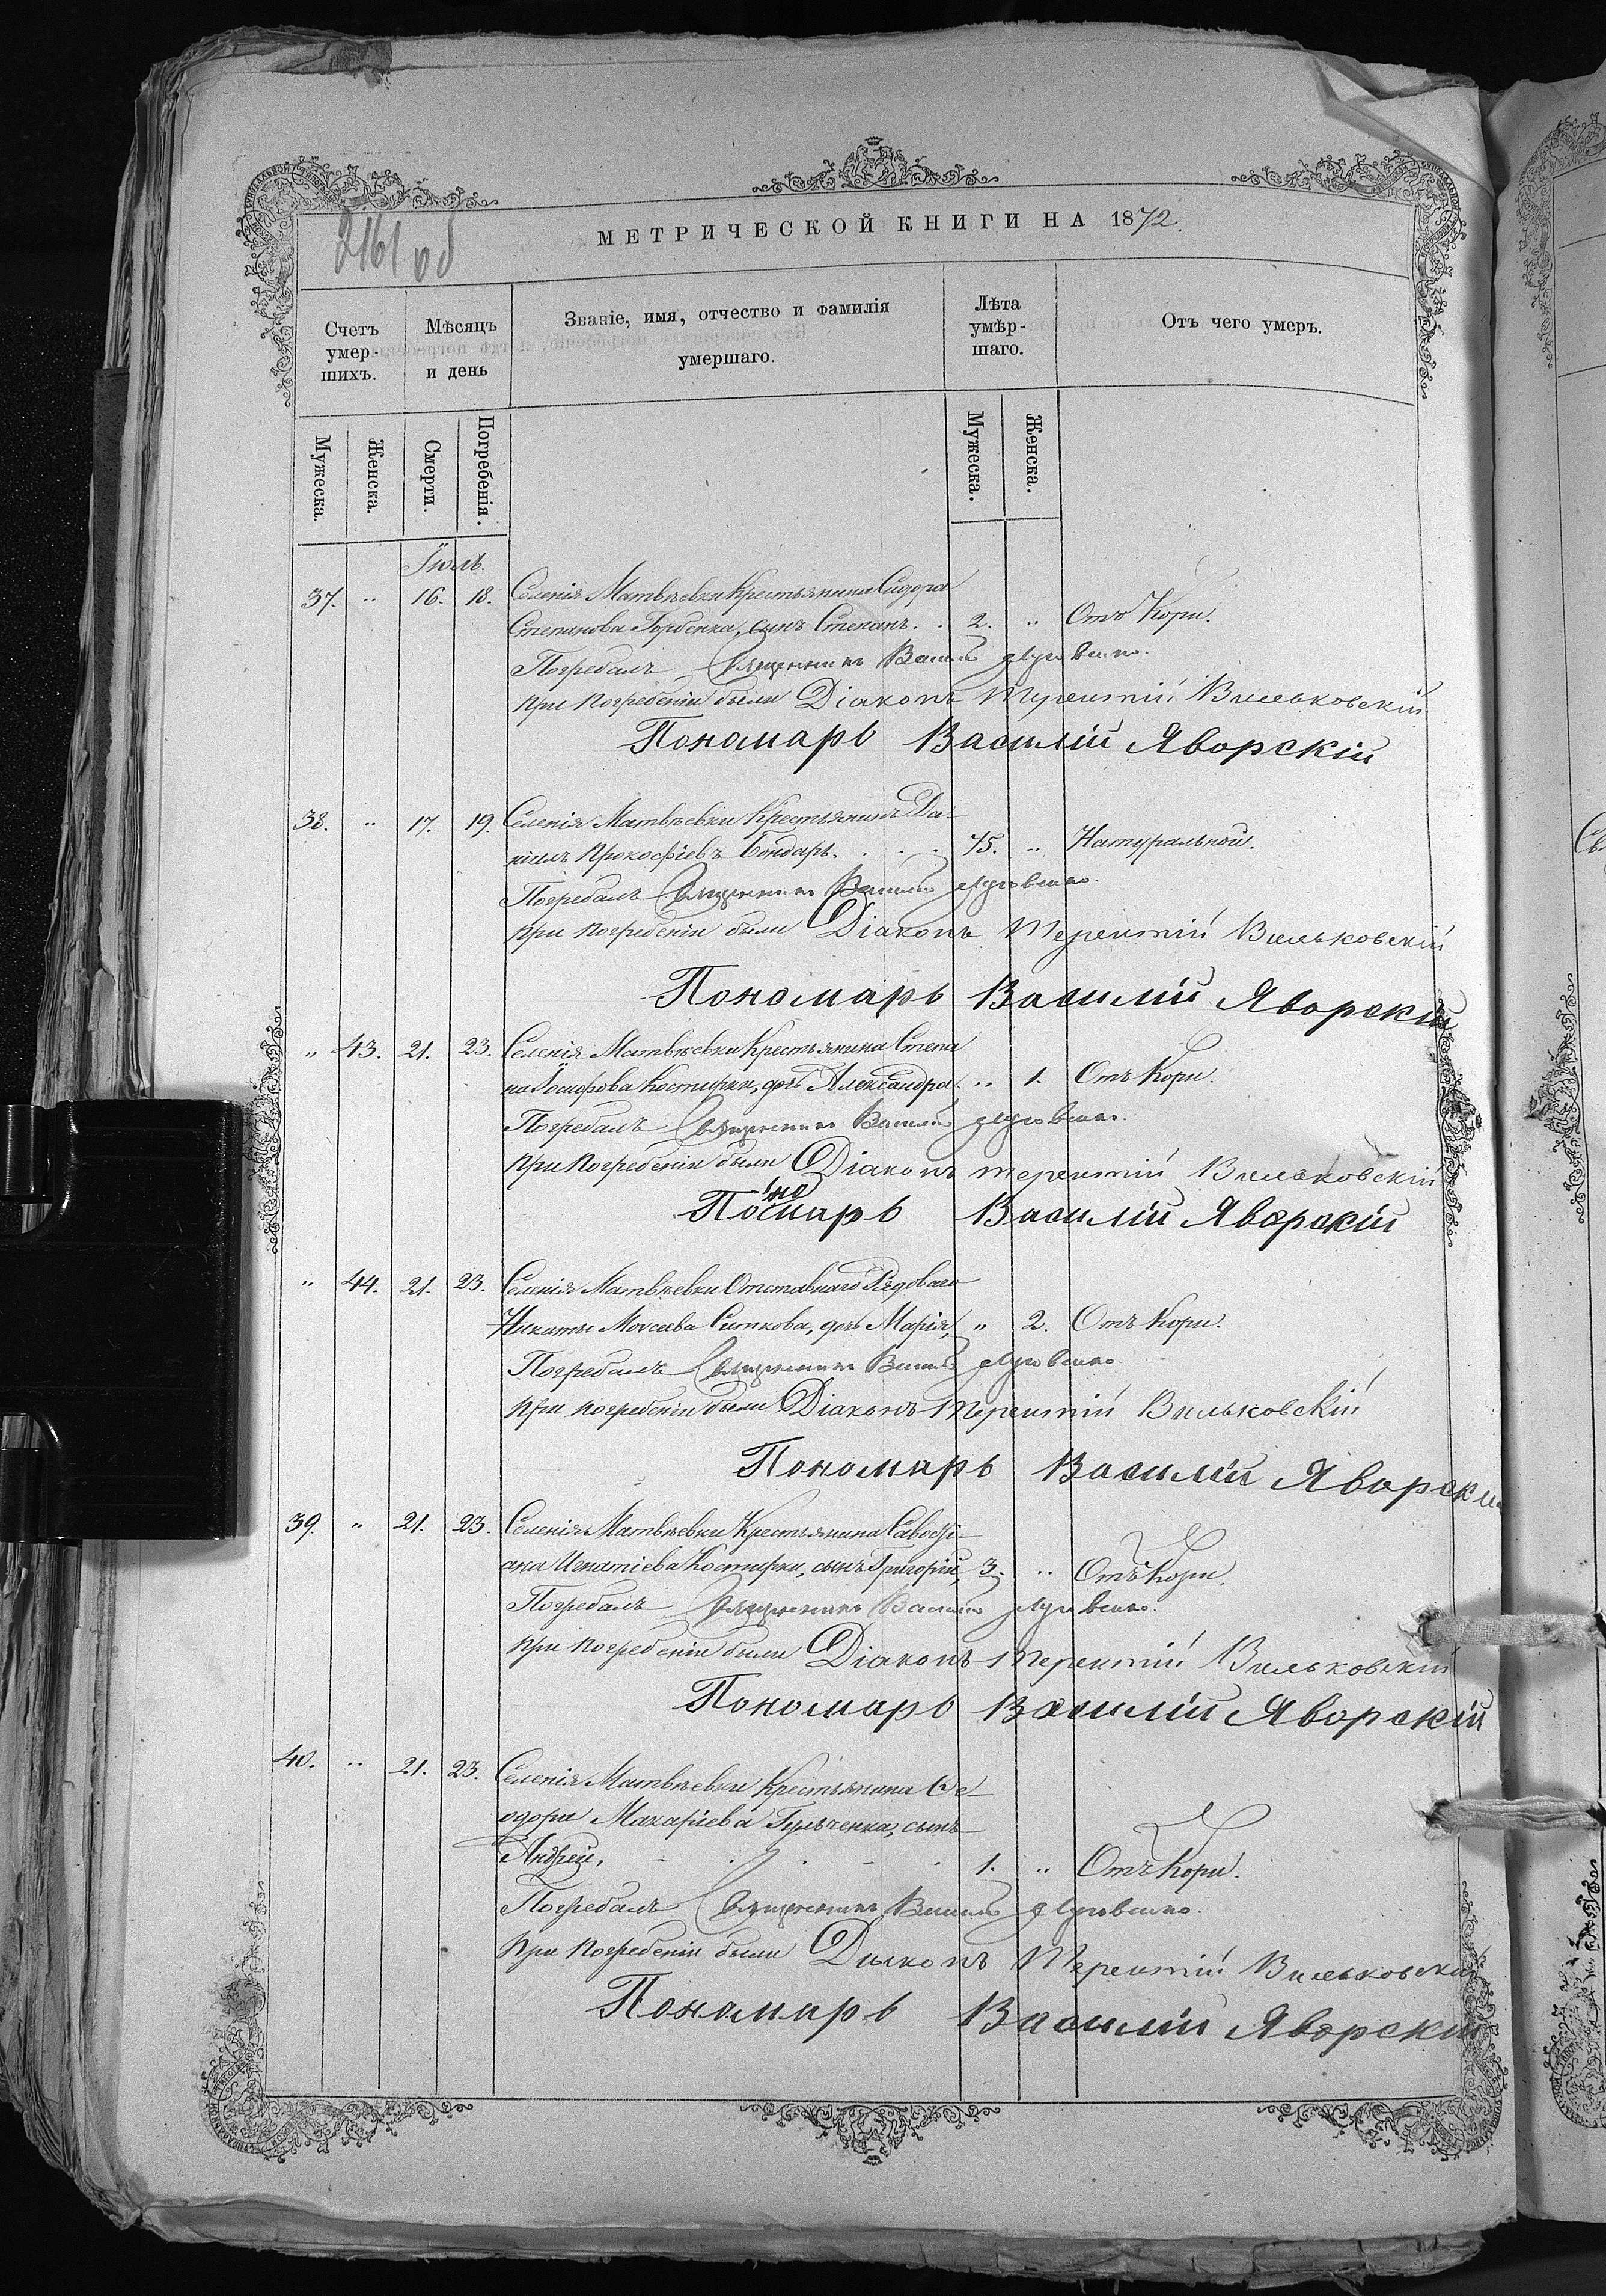 2161 об
МЕТРИЧЕСКОЙ КНИГИ НА 1872.
Счетъ умер-шихъ.
Мѣсяцъ и день
Званіе, имя, отчество и фамилія умершаго.
Лѣта умѣр-шаго.
Отъ чего умеръ.
Мужеска.
Женска.
Смерти.
Погребенія.
Мужеска.
Женска.
Іюль.
37. " 16. 18. Селенія Матвѣевки Крестьянина Сидора
Степанова Горбенка, сынъ Степанъ. . 2. " Отъ Кори.
Погребалъ Священникъ Василій
при погребеніи были Діаконъ Терентій Вильковскій
Пономарь Василій Яворскій
38. " 17. 19. Селенія Матвѣевки Крестьянинъ Да-
ніилъ Прокофіевъ Бондарь. . . . 75. " Натуральной.
Погребалъ Священникъ Василій
при погребеніи были Діаконъ Терентій Вильковскій
Пономарь Василій Яворскій
" 43. 21. 23. Селенія Матвѣевки Крестьянина Степа
на Іосифова Костырки, дочь Александра. " 1. Отъ Кори.
Погребалъ Священникъ Василій
при погребеніи были Діаконъ терентій Вильковскій
Пономарь Василій Яворскій
" 44. 21. 23. Селенія Матвѣевки Отставнаго Рядоваго
Никиты Моисеева Ситкова, дочь Марія, " 2. Отъ Кори.
Погребалъ Священникъ Василій
при погребеніи были Діаконъ Терентій Вильковскій
Пономарь Василій Яворскій
39. " 21. 23. Селенія Матвѣевки Крестьянина Савостi-
ана Игнатіева Костырки, сынъ Григорій, 3. " Отъ Кори.
Погребалъ Священникъ Василій
при погребеніи были Діаконъ Терентій Вильковскій
Пономарь Василій Яворскій
40. " 21. 23. Селенія Матвѣевки Крестьянина Ѳе-
одора Макаріева Гульченка, сынъ
Андрей, . . . 1. " Отъ Кори.
Погребалъ Священникъ Василій
при погребеніи были Дьяконъ Терентій Вильковскій
Пономарь Василій Яворскій